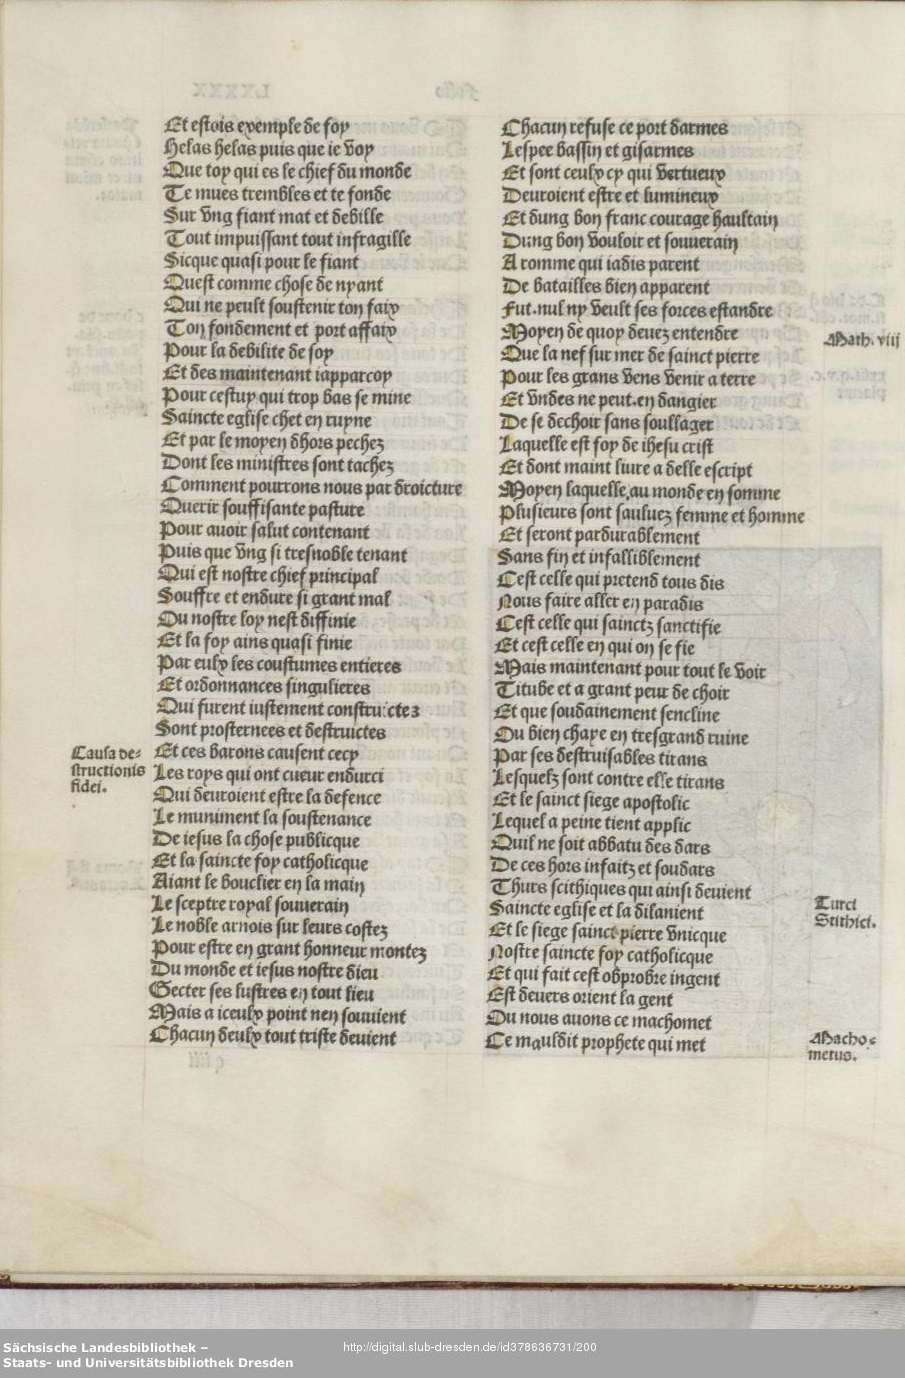 Et estois exemple de foy
Helas helas puis que ie voy
Que toy qui es le chief du monde
Te mues trembles et te fonde
Sur vng fiant mat et debille
Tout impuissant tout infragille
Sicque quasi pour le fiant
Quest comme chose de nyant
Qui ne peult soustenir ton faix
Ton fondement et port affaix
Pour la debilite de soy
Et des maintenant iapparcoy
Pour cestuy qui trop bas se mine
Saincte eglise chet en ruyne
Et par le moyen dhors pechez
Dont les ministres sont tachez
Comment pourrons nous par droicture
Querir souffisante pasture
Pour auoir salut contenant
Puis que vng si tresnoble tenant
Qui est nostre chief principal
Souffre et endure si grant mal
Ou nostre loy nest diffinie
Et la foy ains quasi finie
Par eulx les coustumes entieres
Et ordonnances singulieres
Qui furent iustement constructez
Sont prosternees et destruictes
Causa de-
structionis
fidei.
Et ces barons causent cecy
Les roys qui ont cueur endurci
Qui deuroient estre la defence
Le muniment la soustenance
De iesus la chose publicque
Et la saincte foy catholicque
Aiant le bouclier en la main
Le sceptre royal souuerain
Le noble arnois sur leurs costez
Pour estre en grant honneur montez
Du monde et iesus nostre dieu
Gecter ses lustres en tout lieu
Mais a iceulx point nen souuient
Chacun deulx tout triste deuient
Chacun refuse ce port darmes
Lespee bassin et gisarmes
Et sont ceulx cy qui vertueux
Deuroient estre et lumineux
Et dung bon franc courage haultain
Dung bon vouloir et souuerain
A romme qui iadis parent
De batailles bien apparent
Fut.nul ny veult ses forces estandre
Moyen de quoy deuez entendre
Math. viij
Que la nef sur mer de sainct pierre
Pour les grans vens venir a terre
Et vndes ne peut.en dangier
De se dechoir sans soullager
Laquelle est foy de ihesu crist
Et dont maint liure a delle escript
Moyen laquelle,au monde en somme
Plusieurs sont sauluez femme et homme
Et seront pardurablement
Sans fin et infalliblement
Cest celle qui pretend tous dis
Nous faire aller en paradis
Cest celle qui sainctz sanctifie
Et cest celle en qui on se fie
Mais maintenant pour tout le voir
Titube et a grant peur de choir
Et que soudainement sencline
Ou bien chaye en tresgrand ruine
Par ses destruisables tirans
Lesquelz sont contre elle tirans
Et le sainct siege apostolic
Lequel a peine tient applic
Quil ne soit abbatu des dars
De ces hors infaitz et soudars
Thurs scithiques qui ainsi deuient
Turci
Stithici.
Saincte eglise et la dilanient
Et le siege sainct pierre vnicque
Nostre saincte foy catholicque
Et qui fait cest obprobre ingent
Est deuers orient la gent
Ou nous auons ce machomet
Ce mauldit prophete qui met
Macho-
metus.
Sächsische Landesbibliothek –
Staats- und Universitätsbibliothek Dresden
http://digital.slub-dresden.de/id378636731/200